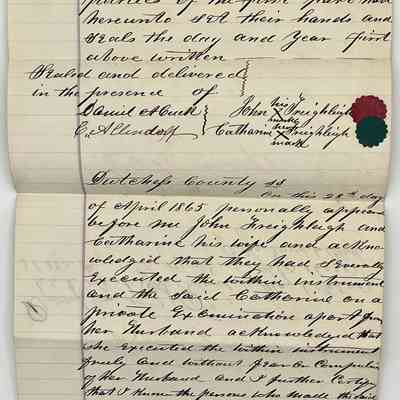 parties of the first part have
hereunto set their hands and
seals the day and year first
above written
Sealed and delivered
in the presence of
Daniel A Cuett
E. Allendorf
John his mark Freighleigh
Catharine her mark Freighleigh
Dutchess County ss
On this 28th day
of April 1865 personally appeared
before me John Freighleigh and
Catharine his wife and ackno
wledged that they had severally
executed the within instrument
and the said Catharine on a
private examination apart from
her Husband acknowledged that
she executed the within instrument
freely and without fear or compulsion
of her Husband and I further certify
that I know the persons who made the said